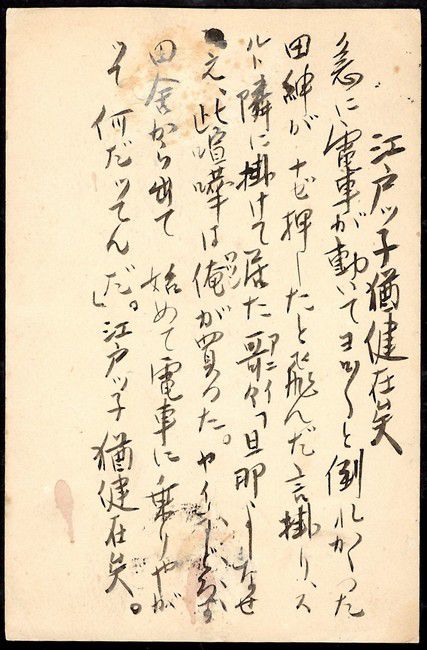 江戸ッ子猶健在矣
急に電車が動いてヨロ〳〵と倒れかゝった
田紳がナゼ押したと飛んだ言掛り、ス
ルト隣に掛けて居た哥々「旦那よしなせ
え、此喧嘩は俺が買った。ヤイ
田舎から出て 始めて電車に乗りやが
って何だッてんだ。」江戸ッ子猶健在矣。